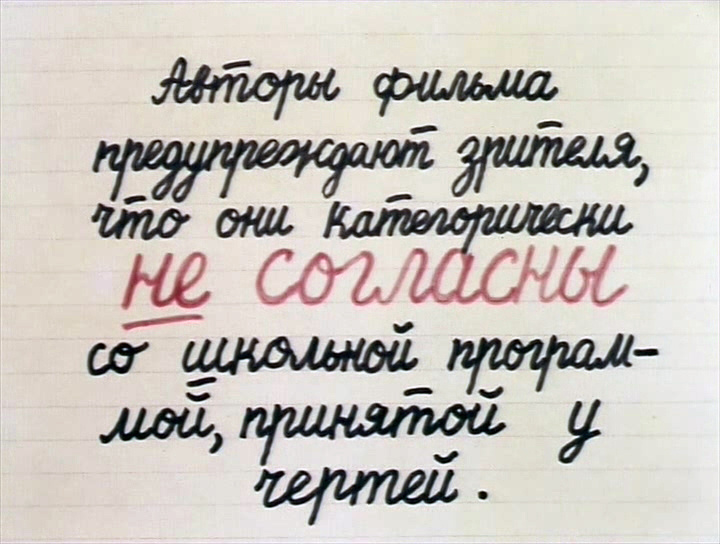 Авторы фильма
предупреждают зрителя,
что они категорически
не согласны
со школьной програм-
мой, принятой у
чертей.